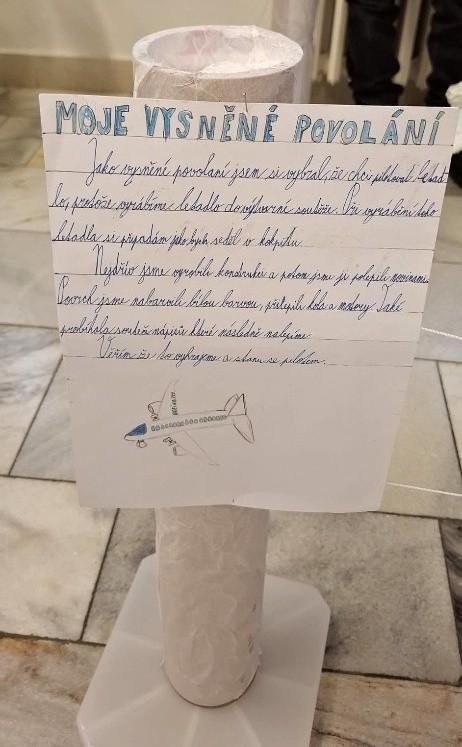 MOJE VYSNĚNÉ POVOLÁNÍ
Jako vysněné povolaní jsem si vybral, že chci pilotovat letad-
lo, protože vyrábíme letadlo do výtvarné soutěže. Při vyrábění toho
letadla si připadám jako bych seděl v kokpitu.
Nejdřív jsme vyrobili konstrukci a potom jsme ji polepili novinami.
Povrch jsme nabarvili bílou barvou, přilepili kola a motory. Také
probíhala soutěž nápisů které následně nalepíme.
Věřím že to vyhrajeme a stanu se pilotem.